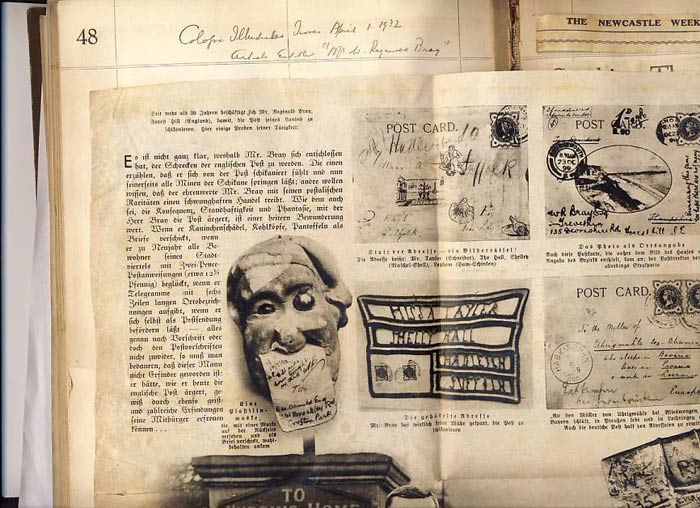 48
Cologne Illustrated Times April 1. 1932
Article entitled "Mr. W. Reginald Bray"
THE NEWCASTLE WEEK
Seit mehr als 30 Jahren beschäftigt sich Mr. Reginald Bray,
Forest Hill (England), damit, die Post seines Landes zu
schikanieren. Hier einige Proben seiner Tätigkeit:
Es ist nicht ganz klar, weshalb Mr. Bray sich entschlossen
hat, der Schrecken der englischen Post zu werden. Die einen
erzählen, daß er sich von der Post schikaniert fühlt und nun
seinerseits alle Minen der Schikane springen läßt; andre wollen
wissen, daß der ehrenwerte Mr. Bray mit seinen postalischen
Raritäten einen schwunghaften Handel treibt. Wie dem auch
sei, die Konsequenz, Standhaftigkeit und Phantasie, mit der
Herr Bray die Post ärgert, ist einer heiteren Bewunderung
wert. Wenn er Kaninchenschädel, Kohlköpfe, Pantoffeln als
Briefe verschickt, wenn
er zu Neujahr alle Be-
wohner seines Stadt-
viertels mit Zwei-Penny-
Postanweisungen (etwa 12½
Pfennig) beglückt, wenn er
Telegramme mit sechs
Zeilen langen Ortsbezeich-
nungen aufgibt, wenn er
sich selbst als Postsendung
befördern läßt — alles
genau nach Vorschrift oder
doch den Postvorschriften
nicht zuwider, so muß man
bedauern, daß dieser Mann
nicht Erfinder geworden ist:
er hätte, wie er heute die
englische Post ärgert, ge-
wiß durch ebenso geist-
und zahlreiche Erfindungen
seine Mitbürger erfreuen
können . . .
Eine
Plastilin-
maske,
die mit einer Marke
auf der Rückseite
versehen und als
Brief verschickt, wohl-
behalten ankam
To
TO
HOME
POST CARD.
Statt der Adresse — ein Bilderrätsel!
Die Adresse heißt: Mr. Taylor (Schneider), The Hall, Shelley
(Muschel-Shell), Hadleigh
MISS E TAYLER
SHELLY HALL
HADLEIGH
SUFFOLK
Die gehäkelte Adresse
Mr. Bray hat wirklich keine Mühe gespart, die Post zu
schikanieren
POST CARD
W R Bray
135 Devonshire Rd Forest hill S.E
Das Photo als Ortsangabe
Auch diese Postkarte, die außer dem Bild des Hauses
Angabe des Bezirks enthielt, kam an; der Postdirektor
allerdings Strafporto
POST CARD.
To the Miller of
Uhrigsmühle
who sleeps in
Bavaria
Europe
An den Müller von Uhrigmühle bei Bliesmengen
Bayern schläft, in Preußen lebt und in Lothringen
Auch die deutsche Post half den Adressaten zu